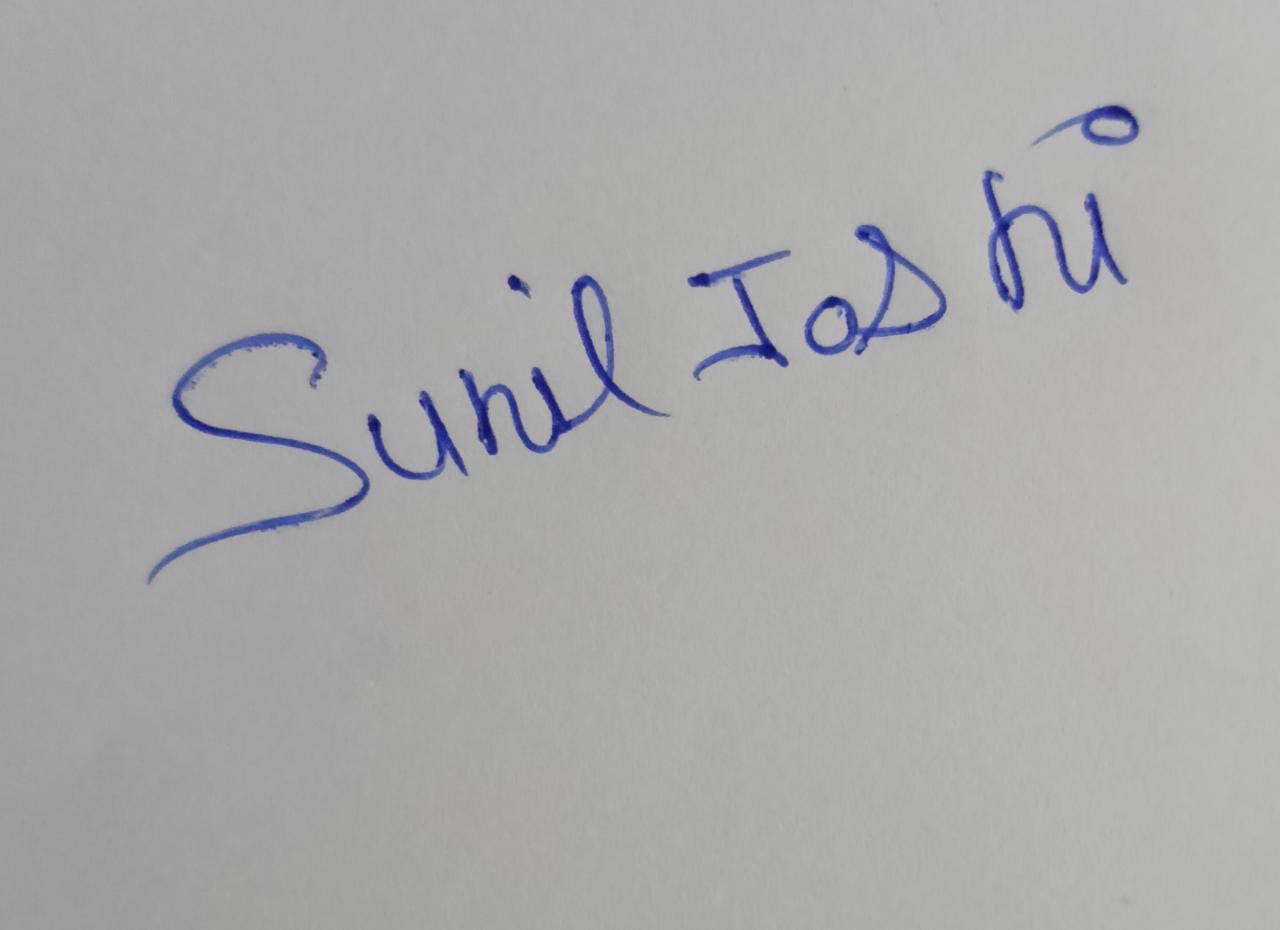 Sunil Joshi